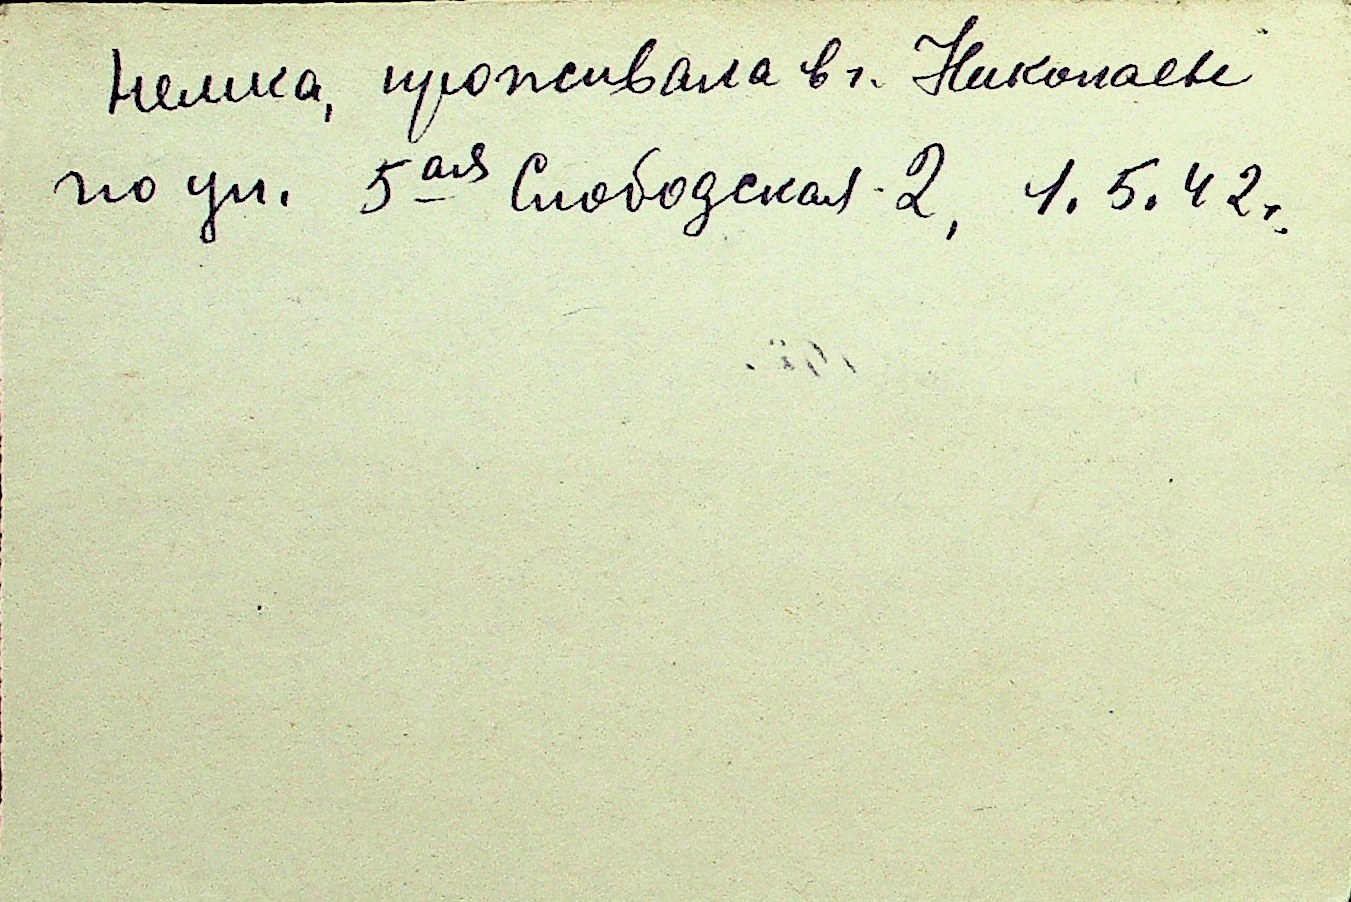 немка, проживала в г. Николаеве
по ул. 5ая Слободская-2, 1.5.42г.